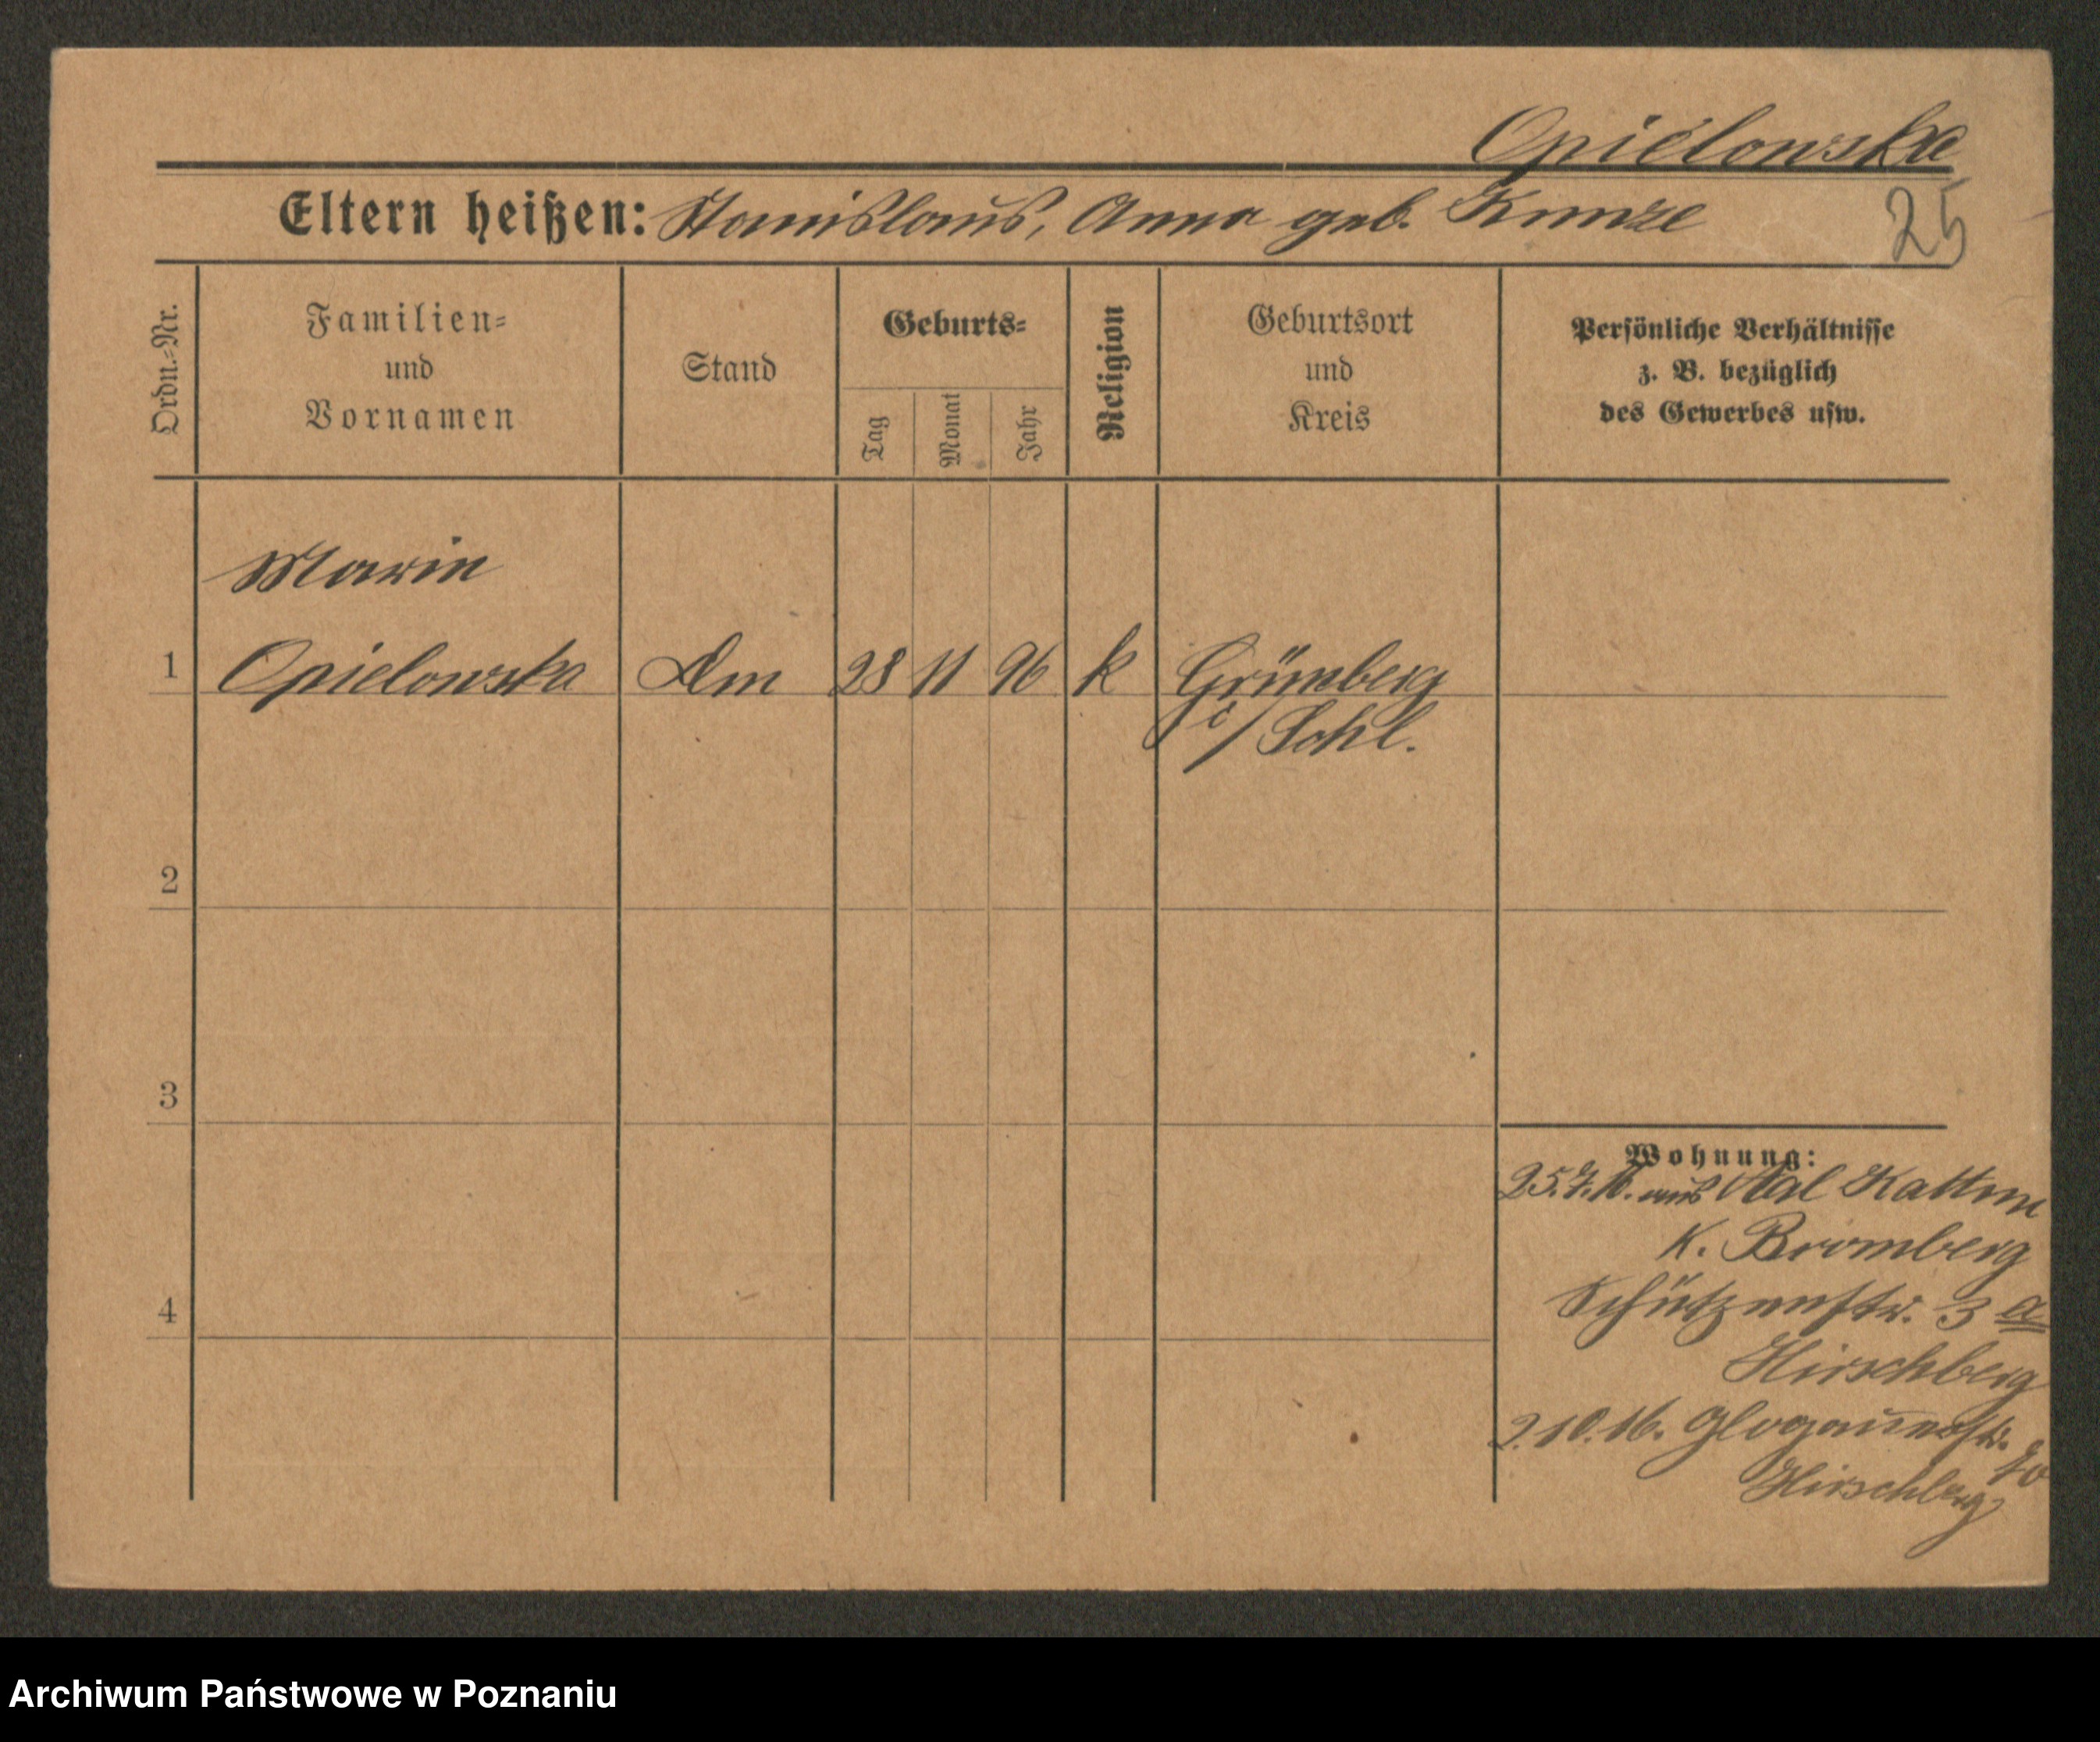 Opielowska
Eltern heißen: Stanislaus, Anna geb. Kunze
25
Ordn.-Nr.
Familien-
und
Vornamen
Stand
Geburts-
Tag
Monat
Jahr
Religion
Geburtsort
und
Kreis
Persönliche Verhältnisse
z. B. bezüglich
des Gewerbes usw.
Marie
1 Opielowska Am 28 11 96 k Grünberg
i/Schl.
2
3
Wohnung:
25.7.16. aus
K. Bromberg
Schützenstr. 3 a
4
Hirschberg
2.10.16. Glogauerstr.
Hirschberg
Archiwum Państwowe w Poznaniu